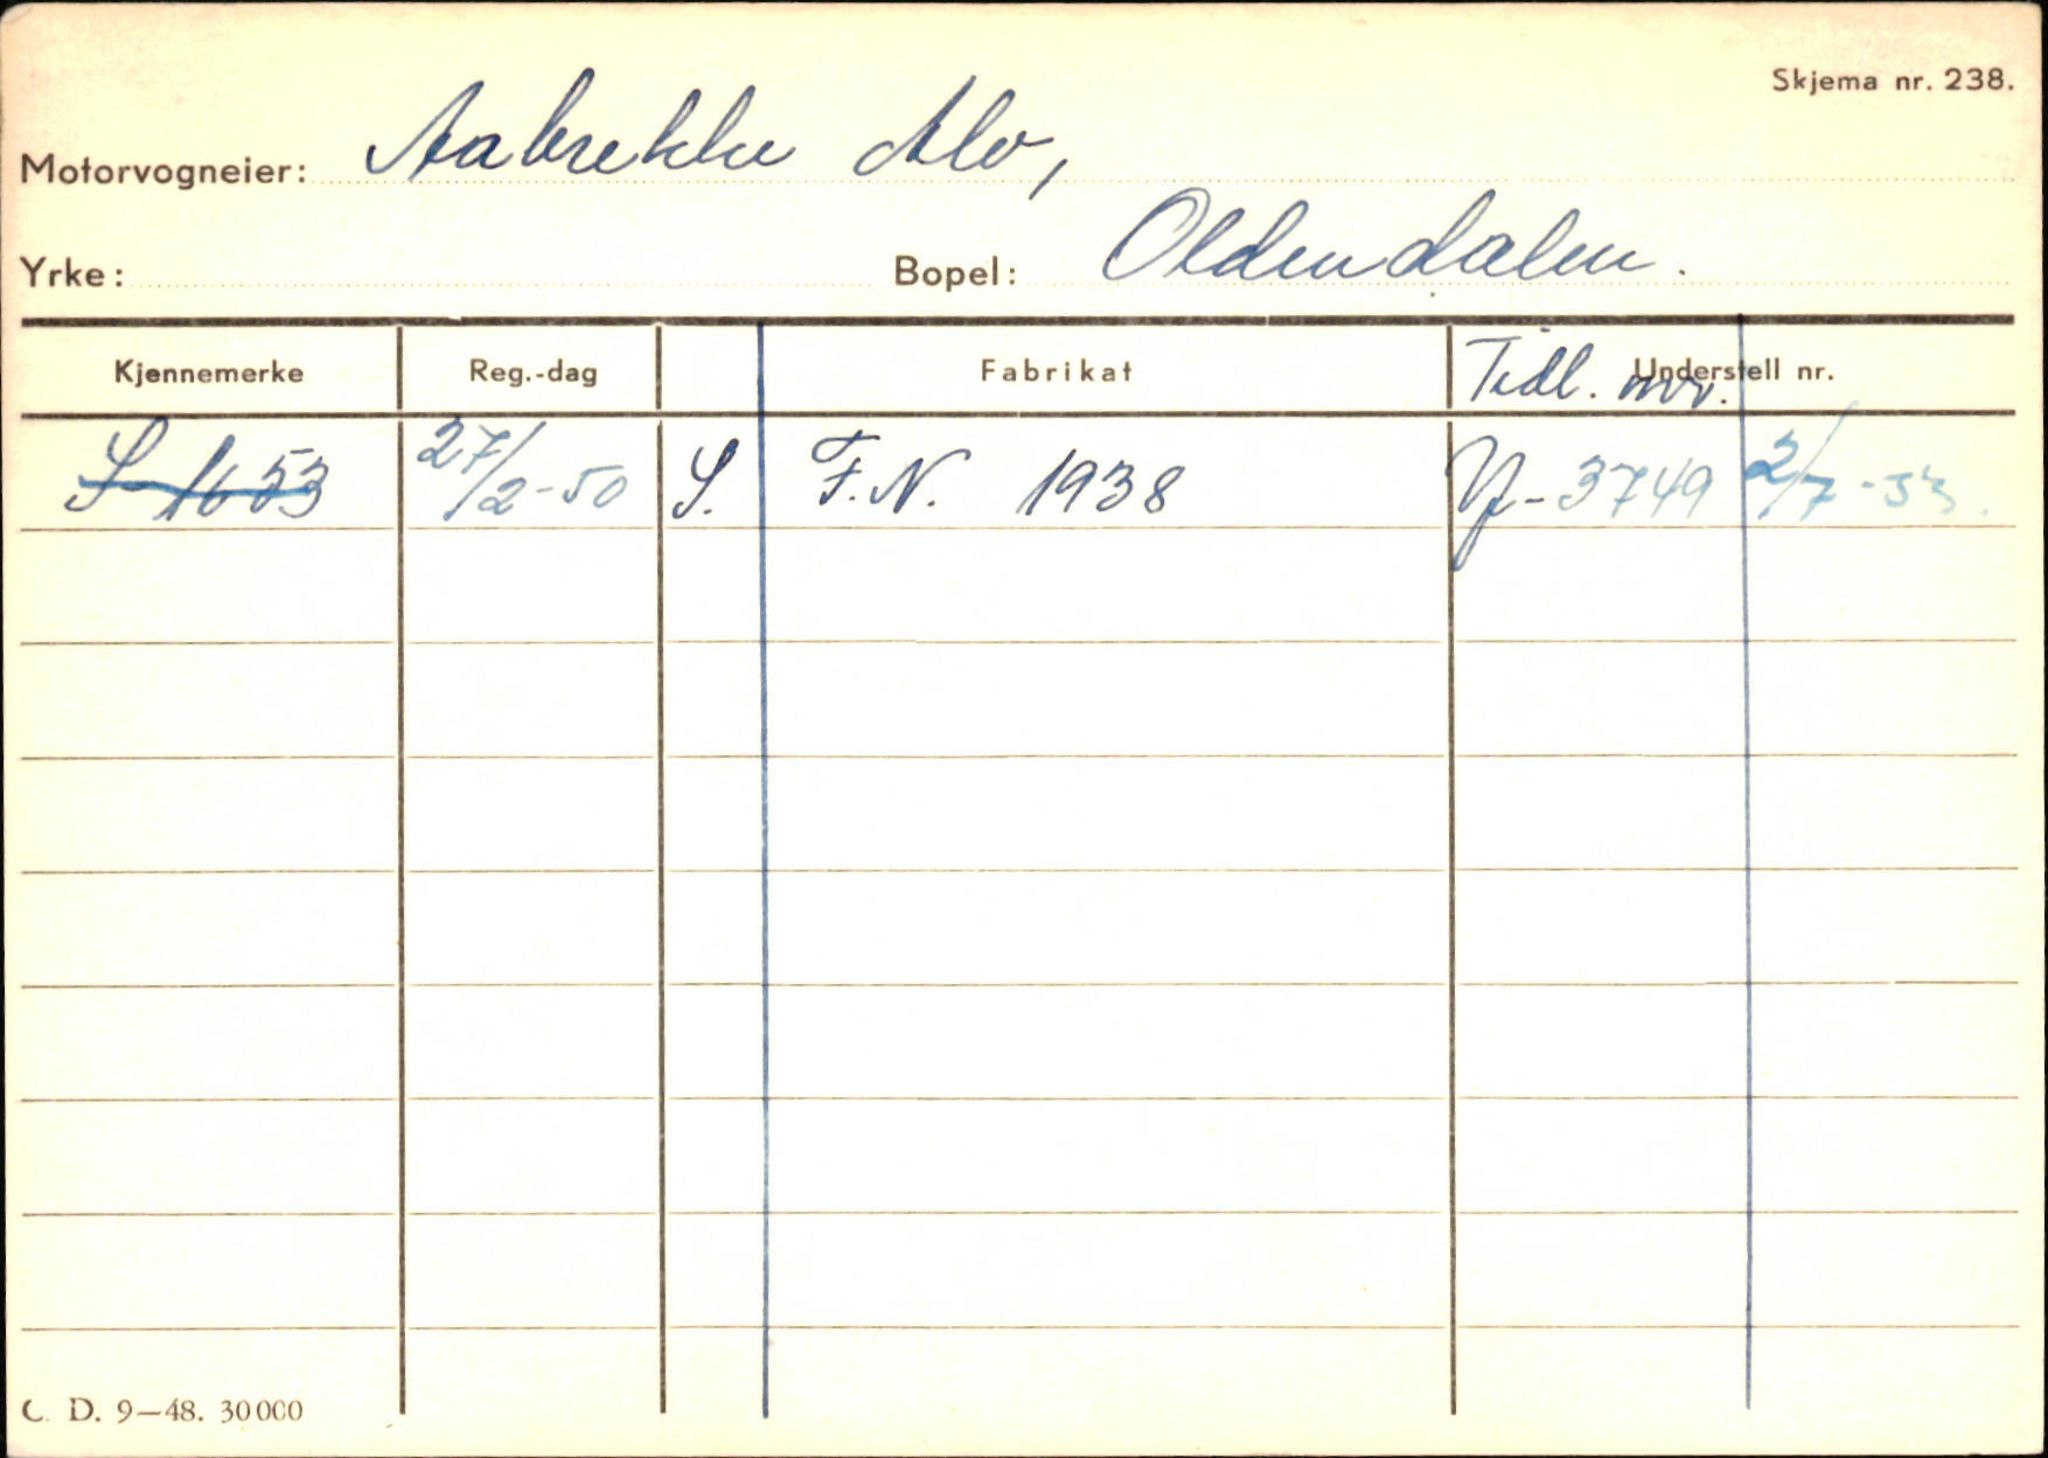 Skjema nr. 238.
Motorvogneier: Aabrekke Alv,
Yrke: Bopel: Oldendalen.
Kjennemerke Reg.-dag Fabrikat Understell nr. Tidl. nr.
S-1653 27/2-50 S. F.N. 1938 -3749 2/7-53.
C. D. 9—48. 30000